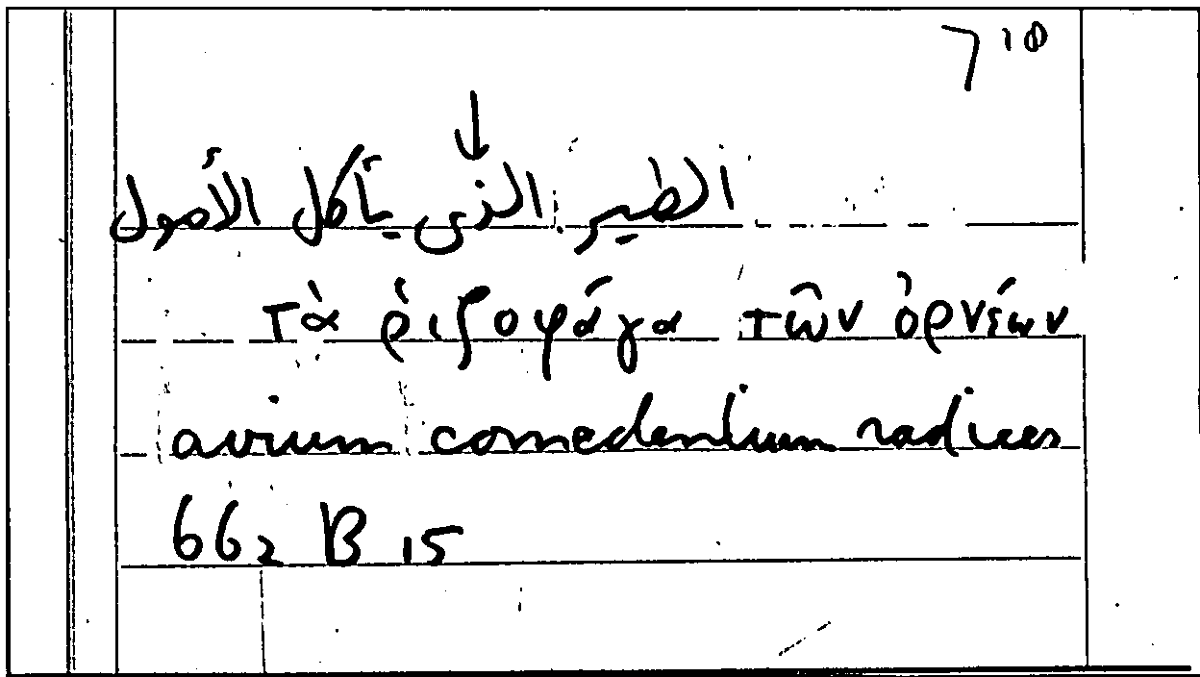 ↓
الطير الذى يأكل الأصول
τὰ ῥιζοφάγα τῶν ὀρνέων
avium comedentium radices
662 B 15